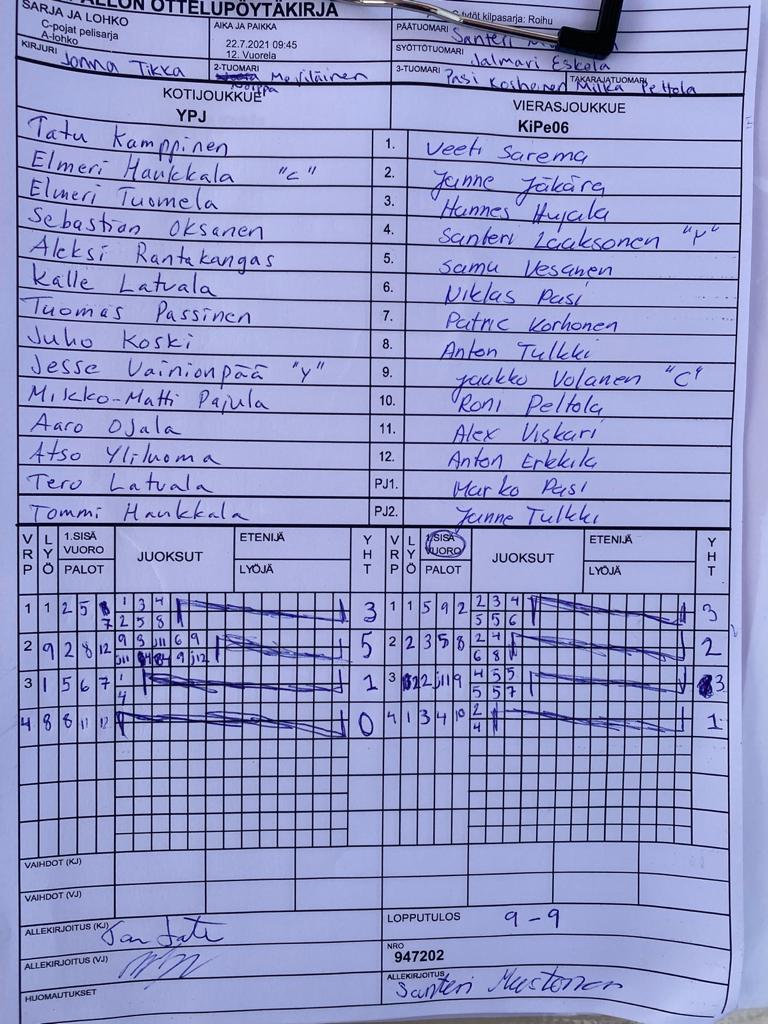 ALLON OTTELUPÖYTÄKIRJA
SARJA JA LOHKO
C-pojat pelisarja
A-lohko
AIKA JA PAIKKA
22.7.2021 09:45
12. Vuorela
kilpasarja: Roihu
PÄÄTUOMARI Santeri
SYÖTTÖTUOMARI Jalmari Eskola
KIRJURI Jonna Tikka
2-TUOMARI Meriläinen
3-TUOMARI Pasi Koskenen
TAKARAJATUOMARI Milka Peltola
KOTIJOUKKUE VIERASJOUKKUE
YPJ KiPe06
Tatu Kamppinen 1. Veeti Sarema
Elmeri Haukkala "C" 2. Janne Jäkärä
Elmeri Tuomela 3. Hannes Hujala
Sebastian Oksanen 4. Santeri Laaksonen "Y"
Aleksi Rantakangas 5. Samu Vesanen
Kalle Latvala 6. Niklas Pasi
Tuomas Passinen 7. Patric Korhonen
Juho Koski 8. Anton Tulkki
Jesse Vainionpää "Y" 9. Jaakko Volanen "C"
Mikko-Matti Pajula 10. Roni Peltola
Aaro Ojala 11. Alex Viskari
Atso Yliluoma 12. Anton Erkkilä
Tero Latvala PJ1. Marko Pasi
Tommi Haukkala PJ2. Janne Tulkki
VRP LYÖ 1.SISÄ VUORO PALOT JUOKSUT ETENIJÄ LYÖJÄ YHT VRP LYÖ 1.SISÄ VUORO PALOT JUOKSUT ETENIJÄ LYÖJÄ YHT
1 1 2 5 7 1 3 4 3 1 1 5 9 2 2 3 4 3
2 5 8 5 5 6
2 9 2 8 12 9 3 j11 6 9 5 2 2 3 5 8 2 4 2
j11 4 9 j12 6 8
3 1 5 6 7 1 1 3 2 j11 9 4 5 5 3
4 5 5 7
4 8 8 11 12 0 4 1 3 4 10 2 1
4
VAIHDOT (KJ)
VAIHDOT (VJ)
ALLEKIRJOITUS (KJ)
LOPPUTULOS 9-9
ALLEKIRJOITUS (VJ)
NRO
947202
HUOMAUTUKSET
ALLEKIRJOITUS
Santeri Mustonen